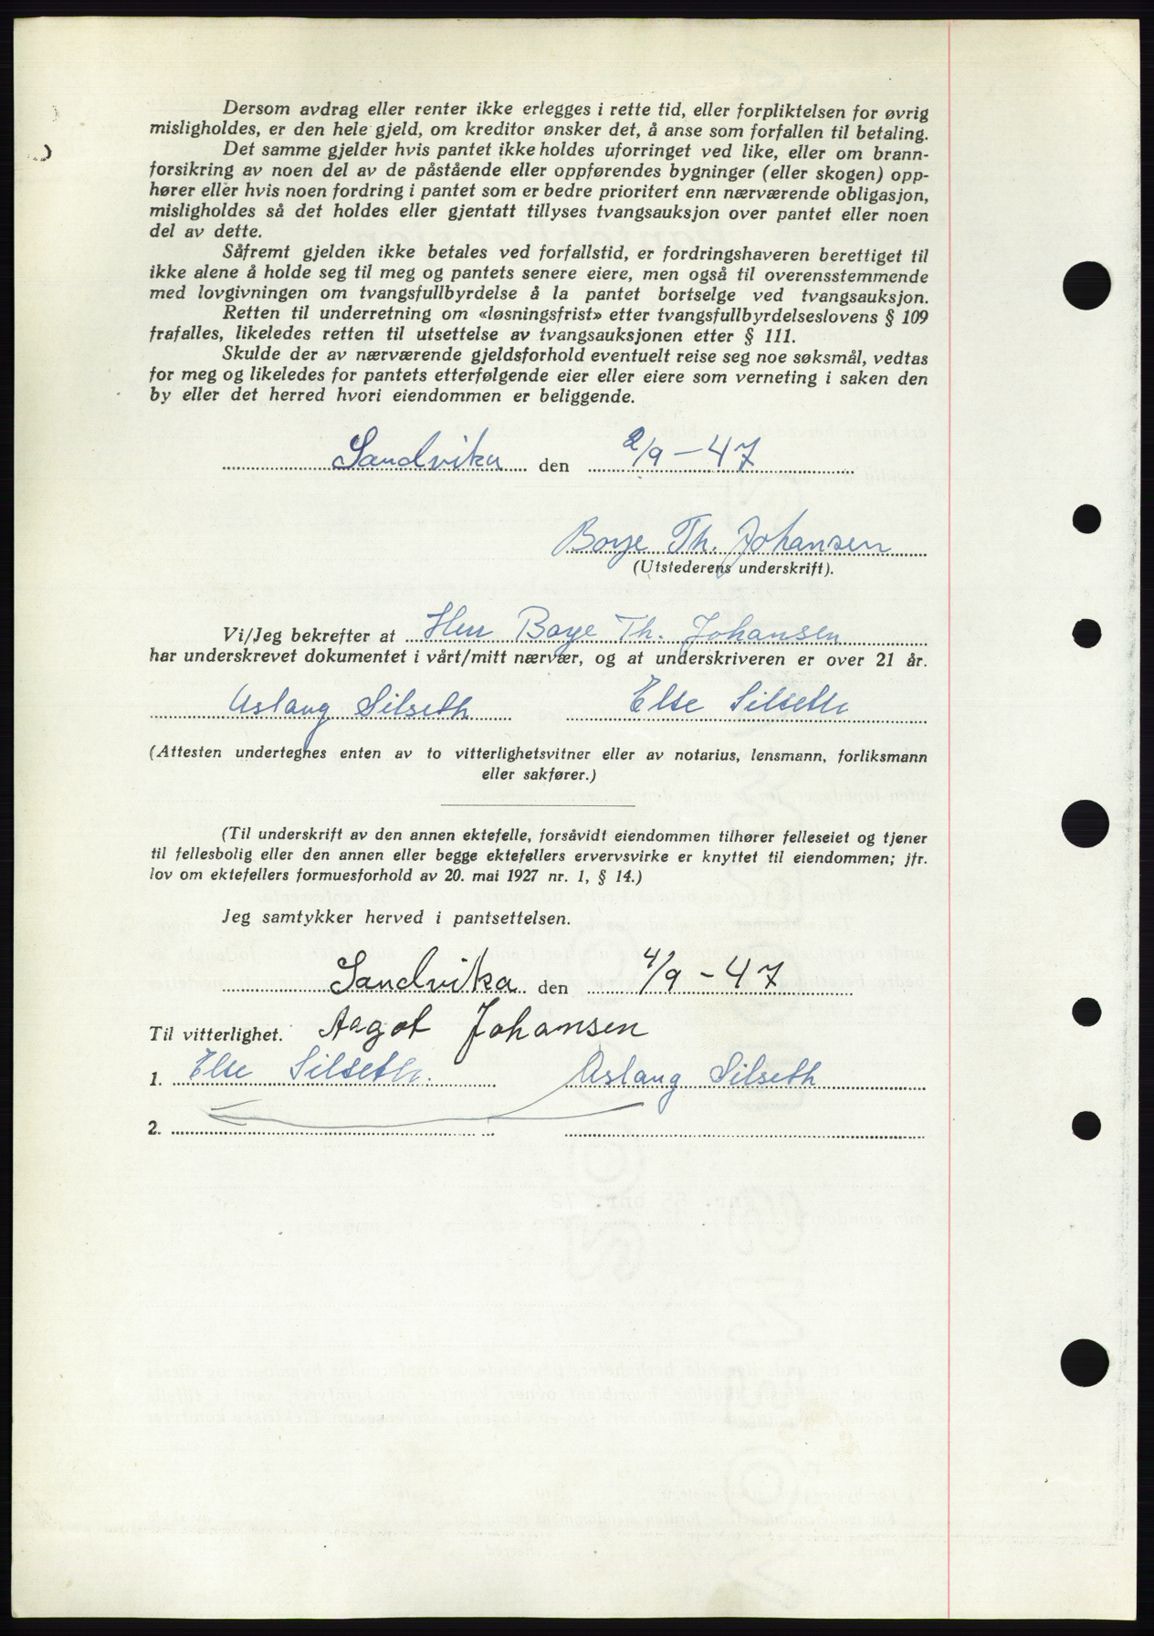 Dersom avdrag eller renter ikke erlegges i rette tid, eller forpliktelsen for øvrig
misligholdes, er den hele gjeld, om kreditor ønsker det, å anse som forfallen til betaling.
Det samme gjelder hvis pantet ikke holdes uforringet ved like, eller om brann-
forsikring av noen del av de påstående eller oppførendes bygninger (eller skogen) opp-
hører eller hvis noen fordring i pantet som er bedre prioritert enn nærværende obligasjon,
misligholdes så det holdes eller gjentatt tillyses tvangsauksjon over pantet eller noen
del av dette.
Såfremt gjelden ikke betales ved forfallstid, er fordringshaveren berettiget til
ikke alene å holde seg til meg og pantets senere eiere, men også til overensstemmende
med lovgivningen om tvangsfullbyrdelse å la pantet bortselge ved tvangsauksjon.
Retten til underretning om «løsningsfrist» etter tvangsfullbyrdelseslovens § 109
frafalles, likeledes retten til utsettelse av tvangsauksjonen etter § 111.
Skulde der av nærværende gjeldsforhold eventuelt reise seg noe søksmål, vedtas
for meg og likeledes for pantets etterfølgende eier eller eiere som verneting i saken den
by eller det herred hvori eiendommen er beliggende.
Sandvika den 2/9-47
Boye Th. Johansen
(Utstederens underskrift).
Vi/Jeg bekrefter at Herr Boye Th. Johansen
har underskrevet dokumentet i vårt/mitt nærvær, og at underskriveren er over 21 år.
Aslaug Silseth Else Silseth
(Attesten undertegnes enten av to vitterlighetsvitner eller av notarius, lensmann, forliksmann
eller sakfører.)
(Til underskrift av den annen ektefelle, forsåvidt eiendommen tilhører felleseiet og tjener
til fellesbolig eller den annen eller begge ektefellers ervervsvirke er knyttet til eiendommen; jfr.
lov om ektefellers formuesforhold av 20. mai 1927 nr. 1, § 14.)
Jeg samtykker herved i pantsettelsen.
Sandvika den 4/9-47
Til vitterlighet. Aagot Johansen
1. Else Silseth. Aslaug Silseth
2.